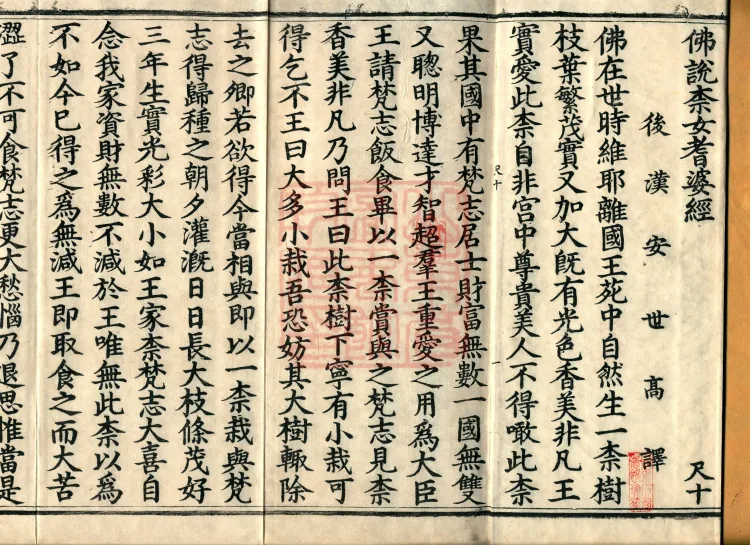 佛說柰女耆婆經
尺十
後漢安世高譯
佛在世時維耶離國王死中自然生一柰樹
枝葉繁茂實又加大旣有光色香美非凡王
實愛此柰自非宮中尊貴美人不得噉此柰
尺十
一
果其國中有梵志居士財富無數一國無雙
又聰明博達才智超羣王重愛之用爲大臣
王請梵志飯食畢以一柰賞與之梵志見柰
香美非凡乃問王曰此柰樹下寧有小栽可
得乞不王曰大多小栽吾恐妨其大樹輙除
去之卿若欲得今當相與即以一柰栽與梵
志得歸種之朝夕灌漑日日長大枝條茂好
三年生實光彩大小如王家柰梵志大喜自
念我家資財無數不減於王唯無此柰以爲
不如今巳得之爲無減王即取食之而大苦
澀了不可食梵志更大愁惱乃退思惟當是